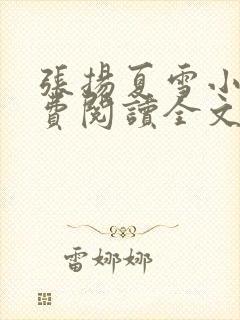 張揚夏雪小
費閱讀全文
雷娜娜